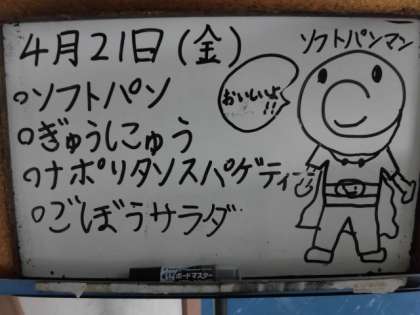 4月21日(金)
○ソフトパン
○ぎゅうにゅう
○ナポリタンスパゲティー
○ごぼうサラダ
ソフトパンマン
おいしいよ!!
ボードマスター